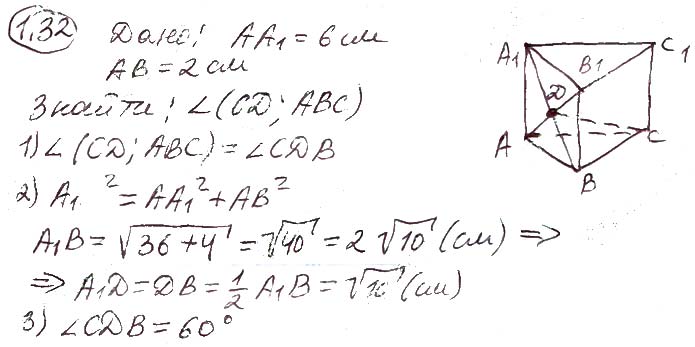 1.32 Дано: AA₁ = 6 см
AB = 2 см
Знайти: ∠(CD; ABC)
1) ∠(CD; ABC) = ∠CDB
2) A₁ ² = AA₁² + AB²
A₁B = √36 + 4 = √40 = 2√10 (см) ⇒
⇒ A₁D = DB = 1/2 A₁B = √10 (см)
3) ∠CDB = 60°
A₁ C₁
B₁
D
A C
B